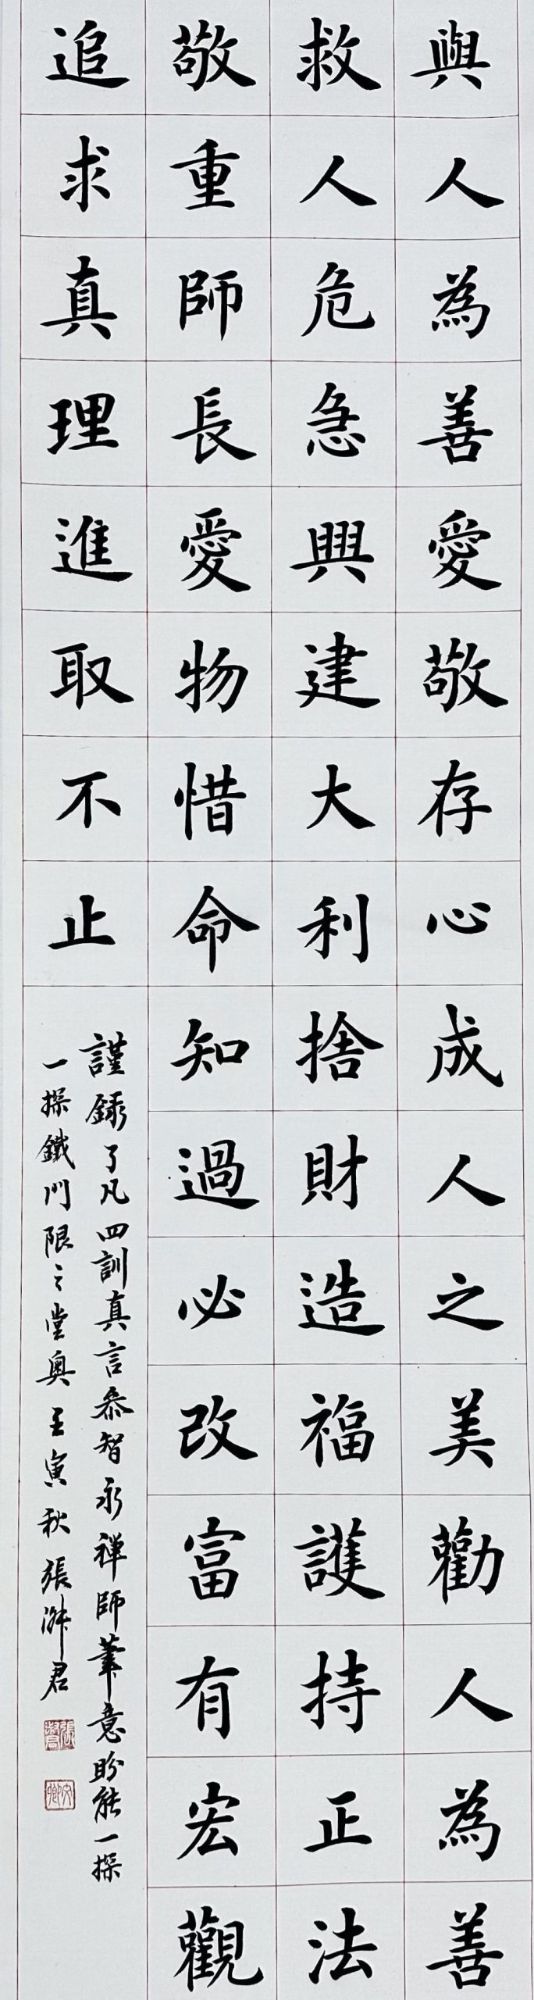 與人為善愛敬存心成人之美勸人為善
救人危急興建大利捨財造福護持正法
敬重師長愛物惜命知過必改富有宏觀
追求真理進取不止
謹錄了凡四訓真言叅智永禪師筆意盼能一探
一探鐵門限之堂奧 壬寅秋 張淑君